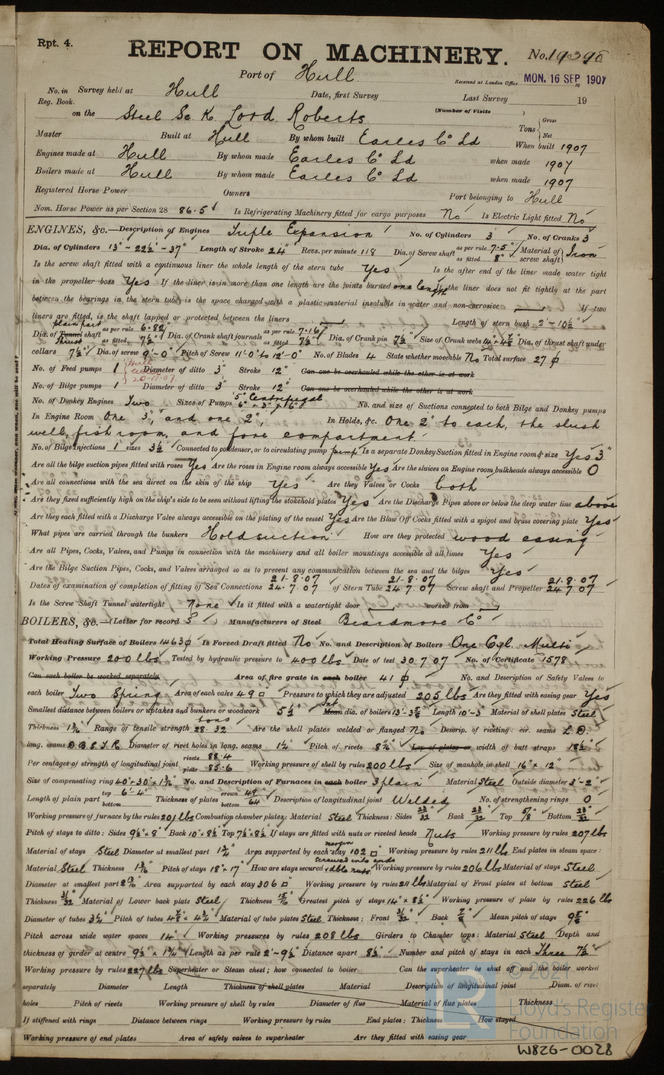 Rpt. 4.
REPORT ON MACHINERY. No. 19390
Port of Hull
Received at London Office MON. 16 SEP 1907
No. in Survey held at Hull Date, first Survey Last Survey 19
Reg. Book. (Number of Visits
on the Steel Sc K Lord Roberts Tons Gross Net
Master Built at Hull By whom built Earles Co Ld When built 1907
Engines made at Hull By whom made Earles Co Ld when made 1907
Boilers made at Hull By whom made Earles Co Ld when made 1907
Registered Horse Power Owners Port belonging to Hull
Nom. Horse Power as per Section 28 86.5 Is Refrigerating Machinery fitted for cargo purposes No Is Electric Light fitted No
ENGINES, &c.—Description of Engines Triple Expansion No. of Cylinders 3 No. of Cranks 3
Dia. of Cylinders 13" - 22½ - 37" Length of Stroke 24" Revs. per minute 118 Dia. of Screw shaft as per rule 7.5" as fitted 8" Material of screw shaft Iron
Is the screw shaft fitted with a continuous liner the whole length of the stern tube Yes Is the after end of the liner made water tight
in the propeller boss Yes If the liner is in more than one length are the joints burned one length If the liner does not fit tightly at the part
between the bearings in the stern tube, is the space charged with a plastic material insoluble in water and non-corrosive If two
liners are fitted, is the shaft lapped or protected between the liners Length of stern bush 2'-10½"
plain part
Dia. of Tunnel shaft as per rule 6.82 as fitted 7½" Dia. of Crank shaft journals as per rule 7.16 as fitted 7½" Dia. of Crank pin 7½" Size of Crank webs Dia. of thrust shaft under
collars 7½" Dia. of screw 9'-0" Pitch of Screw 11'-0" to 12'-0" No. of Blades 4 State whether moveable No Total surface 27
No. of Feed pumps 1 Diameter of ditto 3" Stroke 12" Can one be overhauled while the other is at work
No. of Bilge pumps 1 Diameter of ditto 3" Stroke 12" Can one be overhauled while the other is at work
No. of Donkey Engines Two Sizes of Pumps 5" Centrifugal No. and size of Suctions connected to both Bilge and Donkey pumps
In Engine Room One 3", and one 2" In Holds, &c. One 2" to each, the slush
well, fish room, and fore compartment.
No. of Bilge Injections 1 sizes 3½" Connected to condenser, or to circulating pump pump Is a separate Donkey Suction fitted in Engine room & size Yes 3"
Are all the bilge suction pipes fitted with roses Yes Are the roses in Engine room always accessible Yes Are the sluices on Engine room bulkheads always accessible 0
Are all connections with the sea direct on the skin of the ship Yes Are they Valves or Cocks both
Are they fixed sufficiently high on the ship's side to be seen without lifting the stokehold plates Yes Are the Discharge Pipes above or below the deep water line above
Are they each fitted with a Discharge Valve always accessible on the plating of the vessel Yes Are the Blow Off Cocks fitted with a spigot and brass covering plate Yes
What pipes are carried through the bunkers Hold suction How are they protected wood casing
Are all Pipes, Cocks, Valves, and Pumps in connection with the machinery and all boiler mountings accessible at all times Yes
Are the Bilge Suction Pipes, Cocks, and Valves arranged so as to prevent any communication between the sea and the bilges Yes
Dates of examination of completion of fitting of Sea Connections 21.8.07 24.7.07 of Stern Tube 21.8.07 24.7.07 Screw shaft and Propeller 21.8.07 24.7.07
Is the Screw Shaft Tunnel watertight None Is it fitted with a watertight door worked from
BOILERS, &c.—(Letter for record S) Manufacturers of Steel Beardmore Co
Total Heating Surface of Boilers 1463 Is Forced Draft fitted No No. and Description of Boilers One Cyl. Multi
Working Pressure 200 lbs Tested by hydraulic pressure to 400 lbs Date of test 30.7.07 No. of Certificate 1578
Can each boiler be worked separately Area of fire grate in each boiler 41 No. and Description of Safety Valves to
each boiler Two Spring Area of each valve 4.9 Pressure to which they are adjusted 205 lbs Are they fitted with easing gear Yes
Smallest distance between boilers or uptakes and bunkers or woodwork dia. of boilers Length 10'-3" Material of shell plates Steel
Thickness Range of tensile strength 28-32 tons Are the shell plates welded or flanged No Descrip. of riveting: cir. seams L.D.
long. seams D.B.S.T.R. Diameter of rivet holes in long. seams Pitch of rivets Lap of plates or width of butt straps
Per centages of strength of longitudinal joint rivets 88.4 plate 85.6 Working pressure of shell by rules 200 lbs Size of manhole in shell 16" x 12"
Size of compensating ring No. and Description of Furnaces in each boiler 3 plain Material Steel Outside diameter 3'-2"
Length of plain part top 6'-4" bottom Thickness of plates crown bottom Description of longitudinal joint Welded No. of strengthening rings 0
Working pressure of furnace by the rules 201 lbs Combustion chamber plates: Material Steel Thickness: Sides Back Top Bottom
Pitch of stays to ditto: Sides Back Top If stays are fitted with nuts or riveted heads Nuts Working pressure by rules 207 lbs
Material of stays Steel Diameter at smallest part Area supported by each stay 102 Working pressure by rules 211 lb End plates in steam space:
Material Steel Thickness Pitch of stays 18" x 17" How are stays secured Working pressure by rules 206 lbs Material of stays Steel
Diameter at smallest part Area supported by each stay 306 Working pressure by rules Material of Front plates at bottom Steel
Thickness Material of Lower back plate Steel Thickness Greatest pitch of stays Working pressure of plate by rules 226 lb
Diameter of tubes 3¼" Pitch of tubes Material of tube plates Steel Thickness: Front Back Mean pitch of stays
Pitch across wide water spaces 14" Working pressures by rules 208 lbs Girders to Chamber tops: Material Steel Depth and
thickness of girder at centre Length as per rule 2'-9½" Distance apart Number and pitch of stays in each Three 7½"
Working pressure by rules 227 lbs Superheater or Steam chest; how connected to boiler Can the superheater be shut off and the boiler worked
separately Diameter Length Thickness of shell plates Material Description of longitudinal joint Diam. of rivet
holes Pitch of rivets Working pressure of shell by rules Diameter of flue Material of flue plates Thickness
If stiffened with rings Distance between rings Working pressure by rules End plates: Thickness How stayed
Working pressure of end plates Area of safety valves to superheater Are they fitted with easing gear
© 2021
Lloyd's Register
Foundation
W826-0028